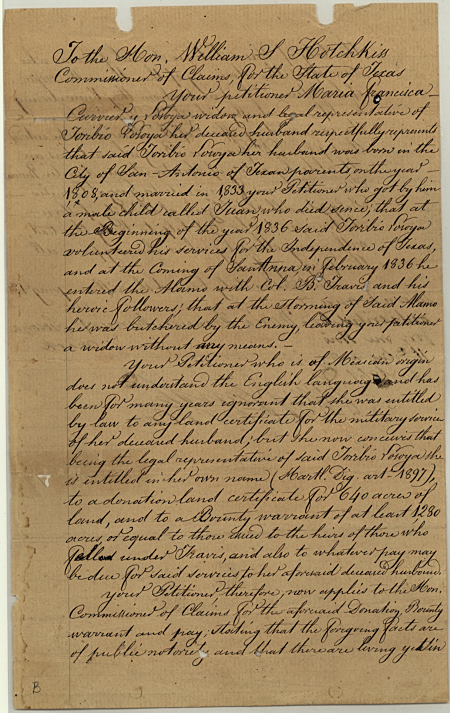 To the Hon. William S Hotchkiss
Commissioner of Claims, for the State of Texas
Your petitioner Maria Francisca
Curvier y Losoya widow and legal representative of
Toribio Losoya her deceased husband respectfully represents
that said Toribio Losoya her husband was born in the
City of San-Antonio of Texan parents, on the year
1808, and married in 1833 your Petitioner who got by him
a male child called Juan, who died since; that at
the Beginning of the year 1836 said Toribio Losoya
volunteered his services for the Independence of Texas,
and at the Coming of SantAnna, in february 1836 he
entered the Alamo with Col. B. Travis and his
heroic followers; that at the Storming of Said Alamo
he was butchered by the Enemy leaving your petitioner
a widow without any means. —
Your Petitioner who is of Mexican origin
does not understand the English language and has
been for many years ignorant that she was entitled
by law to any land certificate for the military service
of her deceased husband; but she now conceives that
being the legal representative of said Toribio Losoya she
is entitled in her own name (Hartl. Dig. art- 1897),
to a donation land certificate for 640 acres of
land, and to a Bounty warrant of at least 1,280
acres, or equal to those issued to the heirs of those who
under Travis, and also to whatever pay may
be due for said services to her aforesaid deceased husband.
Your Petitioner therefore, now applies to the Hon.
Commissioner of Claims for the aforesaid Donation, Bounty
warrant and pay; stating that the foregoing facts are
of public notoriety and that there are living yet in
B